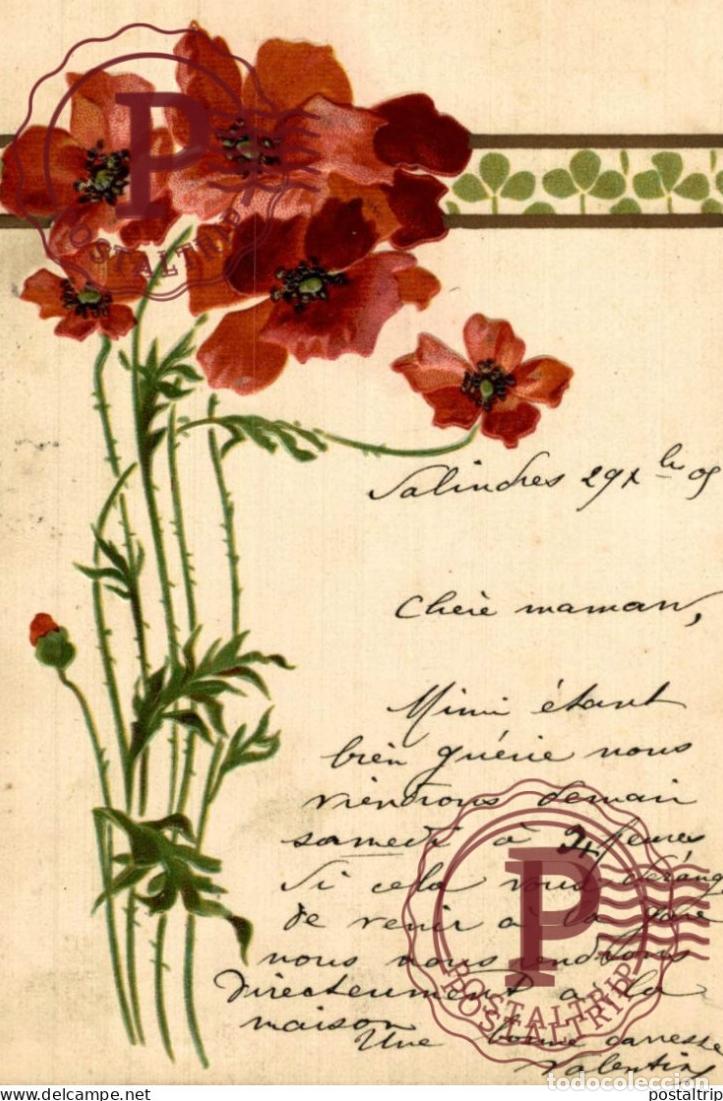 P
POSTALTRIP
Salindres 29 Xbre 05
Chère maman,
Mimi étant
bien guérie nous
viendrons demain
samedi à heures
Si cela vous dérange
de venir à la gare
nous nous rendrons
directement à la
maison
Une bonne caresse
Valentin
P
POSTALTRIP
todocoleccion
www.todocoleccion.net
postaltrip